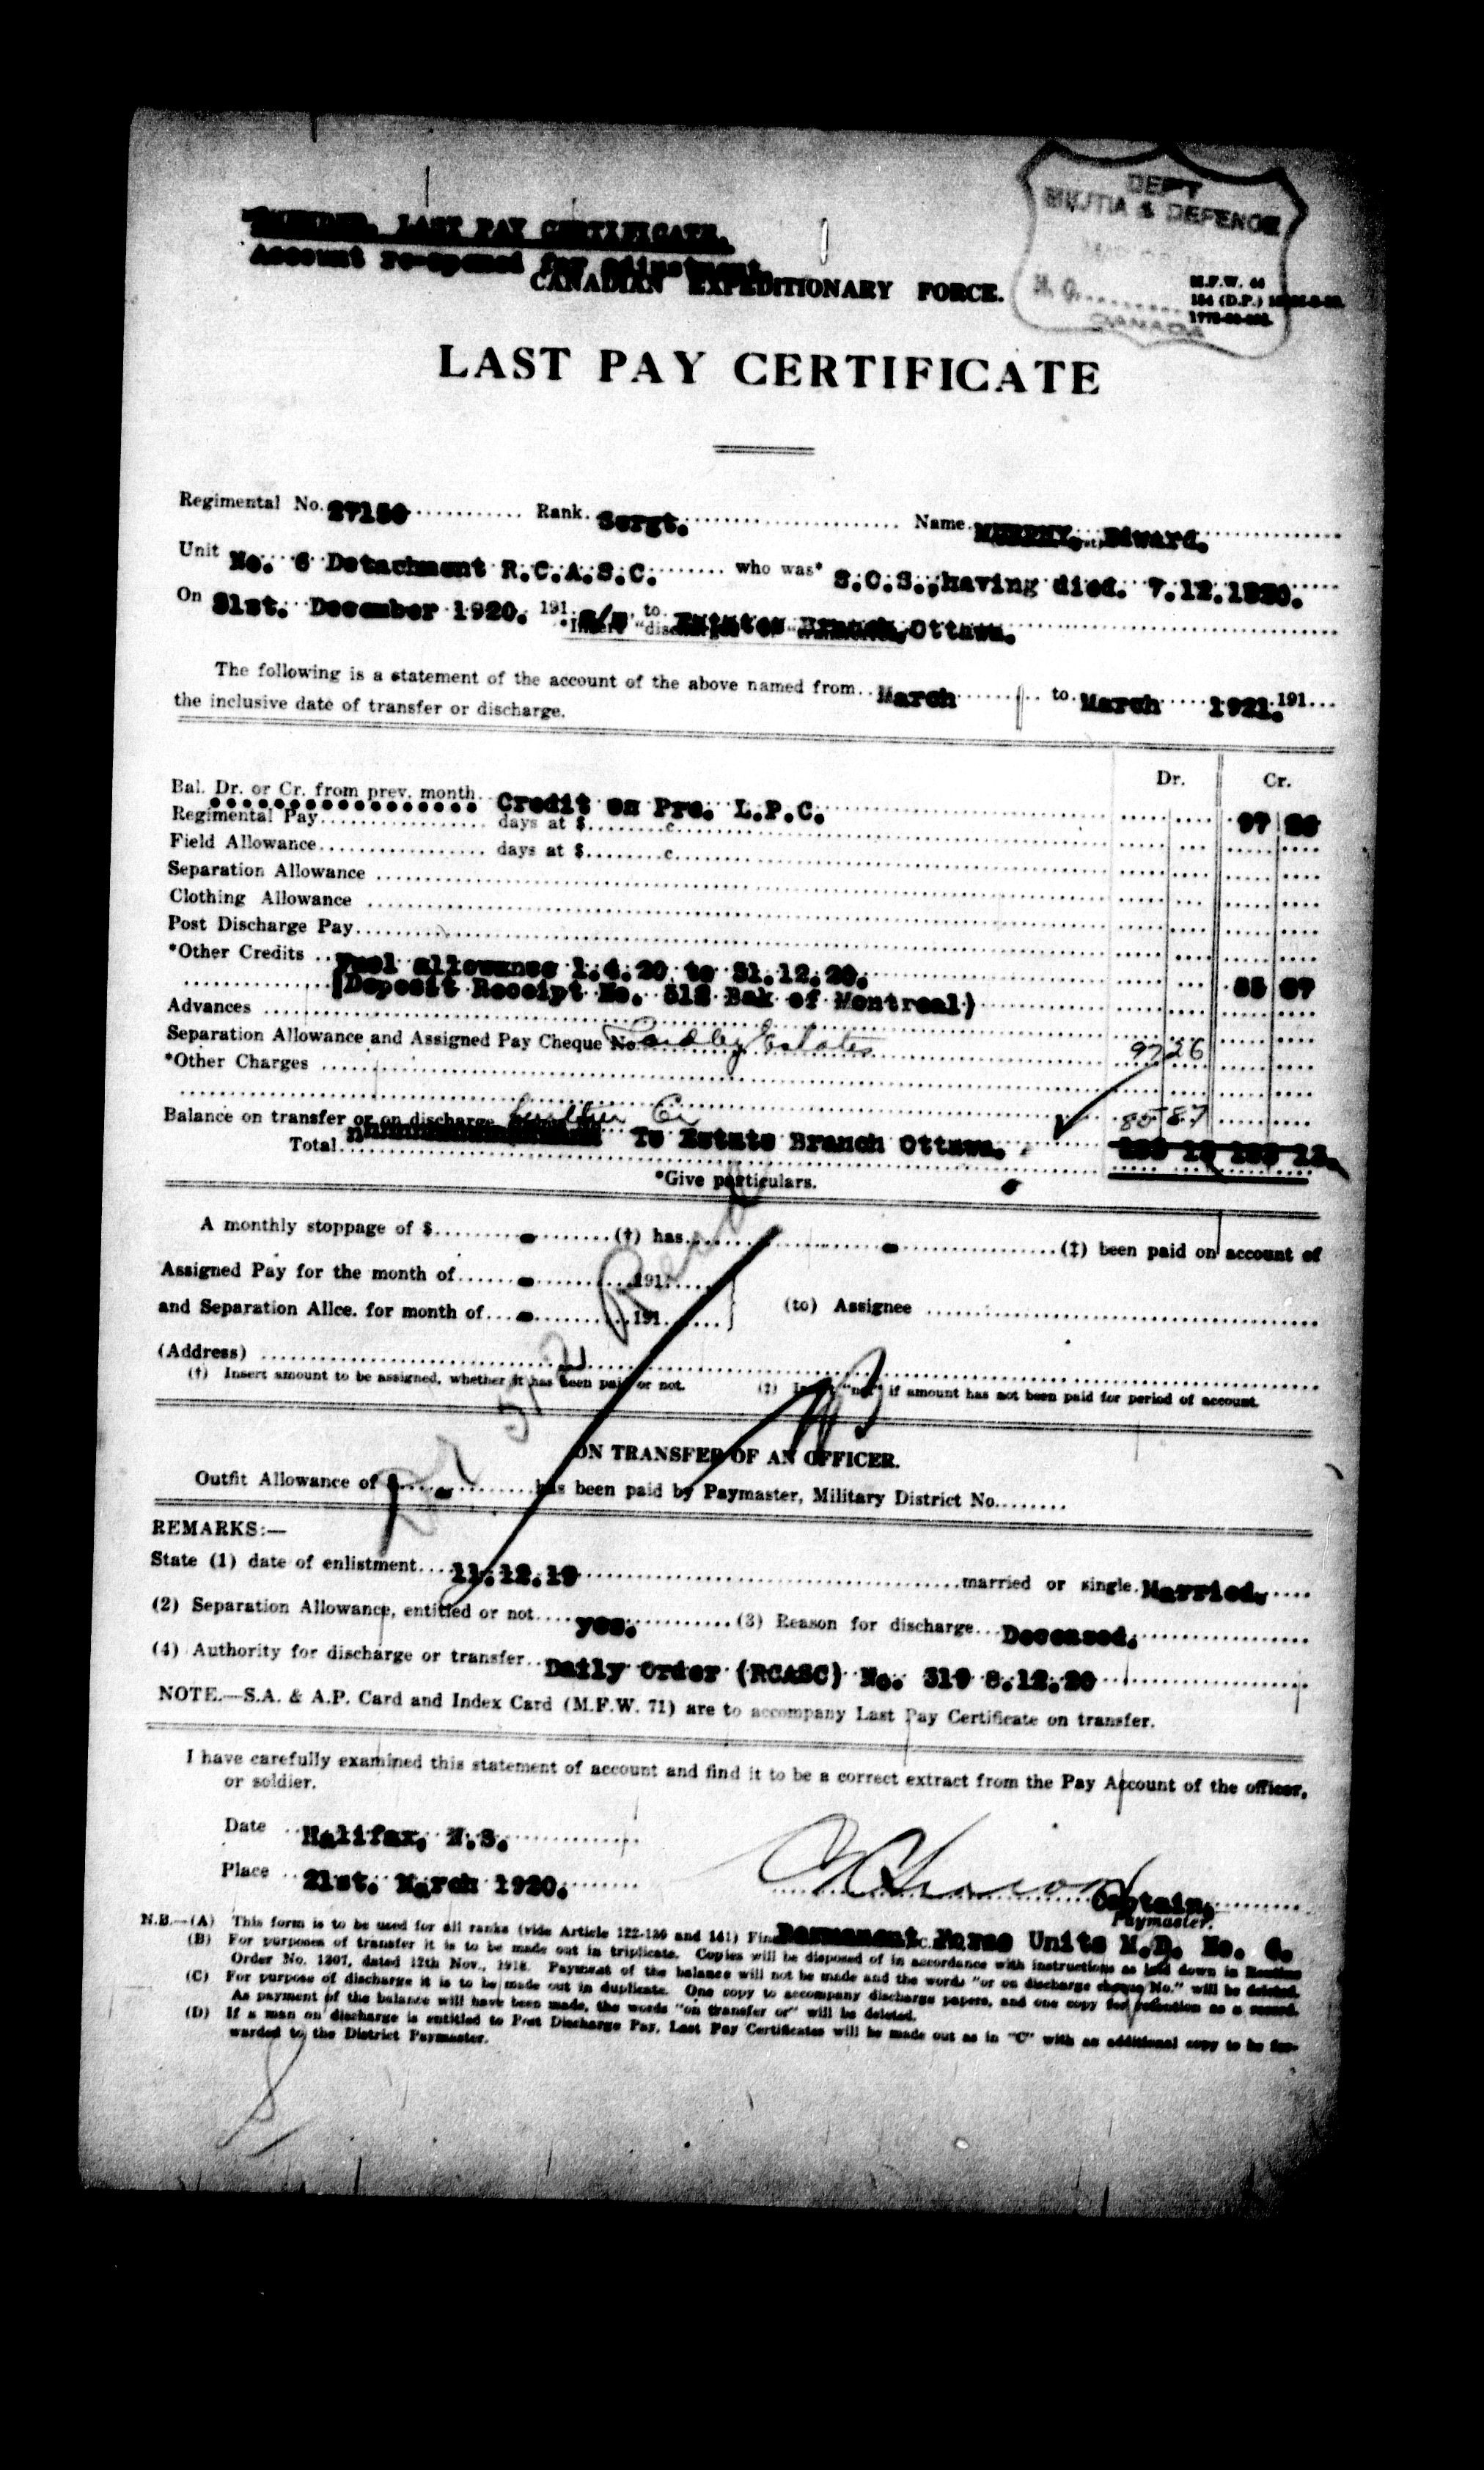 LAST PAY CERTIFICATE.
Account re-opened for adjustment
DEPT
MILITIA & DEFENCE
H. Q.
CANADA
CANADIAN EXPEDITIONARY FORCE.
M.F.W. 44
LAST PAY CERTIFICATE
Regimental No. 27150 Rank. Sergt. Name. MURPHY, Edward.
Unit No. 6 Detachment R.C.A.S.C. who was* S.O.S., having died. 7.12.1920.
On 31st. December 1920. 191 to Estates Branch, Ottawa.
The following is a statement of the account of the above named from March to March 1921. 191
the inclusive date of transfer or discharge.
Dr. Cr.
Bal. Dr. or Cr. from prev. month Credit on Pre. L.P.C. 97 26
Regimental Pay days at $ c
Field Allowance days at $ c
Separation Allowance
Clothing Allowance
Post Discharge Pay
*Other Credits Fuel allowance 1.4.20 to 31.12.20. 85 87
(Deposit Receipt No. 512 Bak of Montreal)
Advances
Separation Allowance and Assigned Pay Cheque No. Paid by Estates 97 26
*Other Charges
Balance on transfer or on discharge further Cr 85 87
Total To Estate Branch Ottawa. 183 13 183 13
*Give particulars.
A monthly stoppage of $ - (†) has - (‡) been paid on account of
Assigned Pay for the month of - 191
and Separation Allce. for month of - 191 (to) Assignee
(Address)
(†) Insert amount to be assigned, whether it has been paid or not. (‡) Insert "not" if amount has not been paid for period of account.
ON TRANSFER OF AN OFFICER.
Outfit Allowance of $ - has been paid by Paymaster, Military District No.
REMARKS:—
State (1) date of enlistment 11.12.19 married or single. Married.
(2) Separation Allowance, entitled or not yes. (3) Reason for discharge Deceased.
(4) Authority for discharge or transfer Daily Order (RCASC) No. 319 8.12.20
NOTE.—S.A. & A.P. Card and Index Card (M.F.W. 71) are to accompany Last Pay Certificate on transfer.
I have carefully examined this statement of account and find it to be a correct extract from the Pay Account of the officer,
or soldier.
Date Halifax, N.S.
Place 21st. March 1920.
Captain,
Paymaster.
Permanent Force Units M.D. No. 6.
N.B.—(A) This form is to be used for all ranks (vide Article 122-136 and 141)
(B) For purposes of transfer it is to be made out in triplicate. Copies will be disposed of in accordance with instructions as laid down in Routine
Order No. 1207, dated 12th Nov., 1918. Payment of the balance will not be made and the words "or on discharge cheque No." will be deleted.
(C) For purpose of discharge it is to be made out in duplicate. One copy to accompany discharge papers, and one copy for retention as a record.
As payment of the balance will have been made, the words "on transfer or" will be deleted.
(D) If a man on discharge is entitled to Post Discharge Pay, Last Pay Certificates will be made out as in "C" with an additional copy to be for-
warded to the District Paymaster.